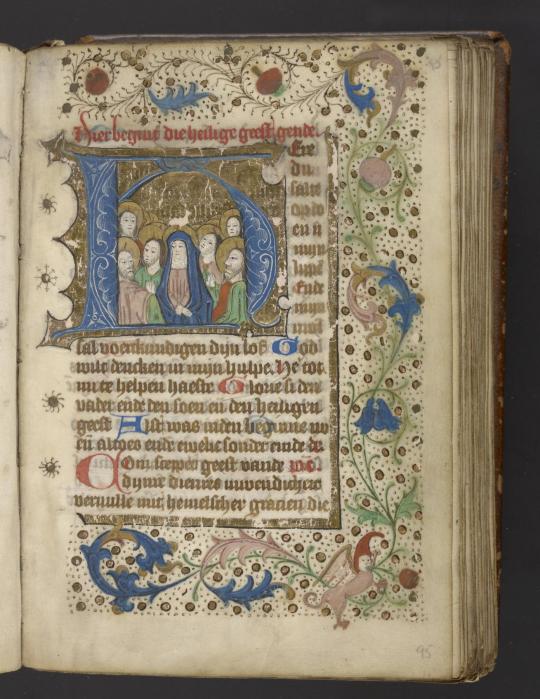 Hier beginnt die heilige geest gende.
Ere
du
salt
op do
en n
mijn
lippē
Ende
mijn
mōt
sal voertkundigen dijn lof God
wilt dencken in mijn hulpe. He tot
mi te helpen haeste Glorie si den
vader ende den soen en den heiligen
geest Alst was inden beginne nv
eñ altoes ende ewelic sonder einde
Com scepper geest vande
dijnre dienres
vervulle mit hemelscher gracien die
95